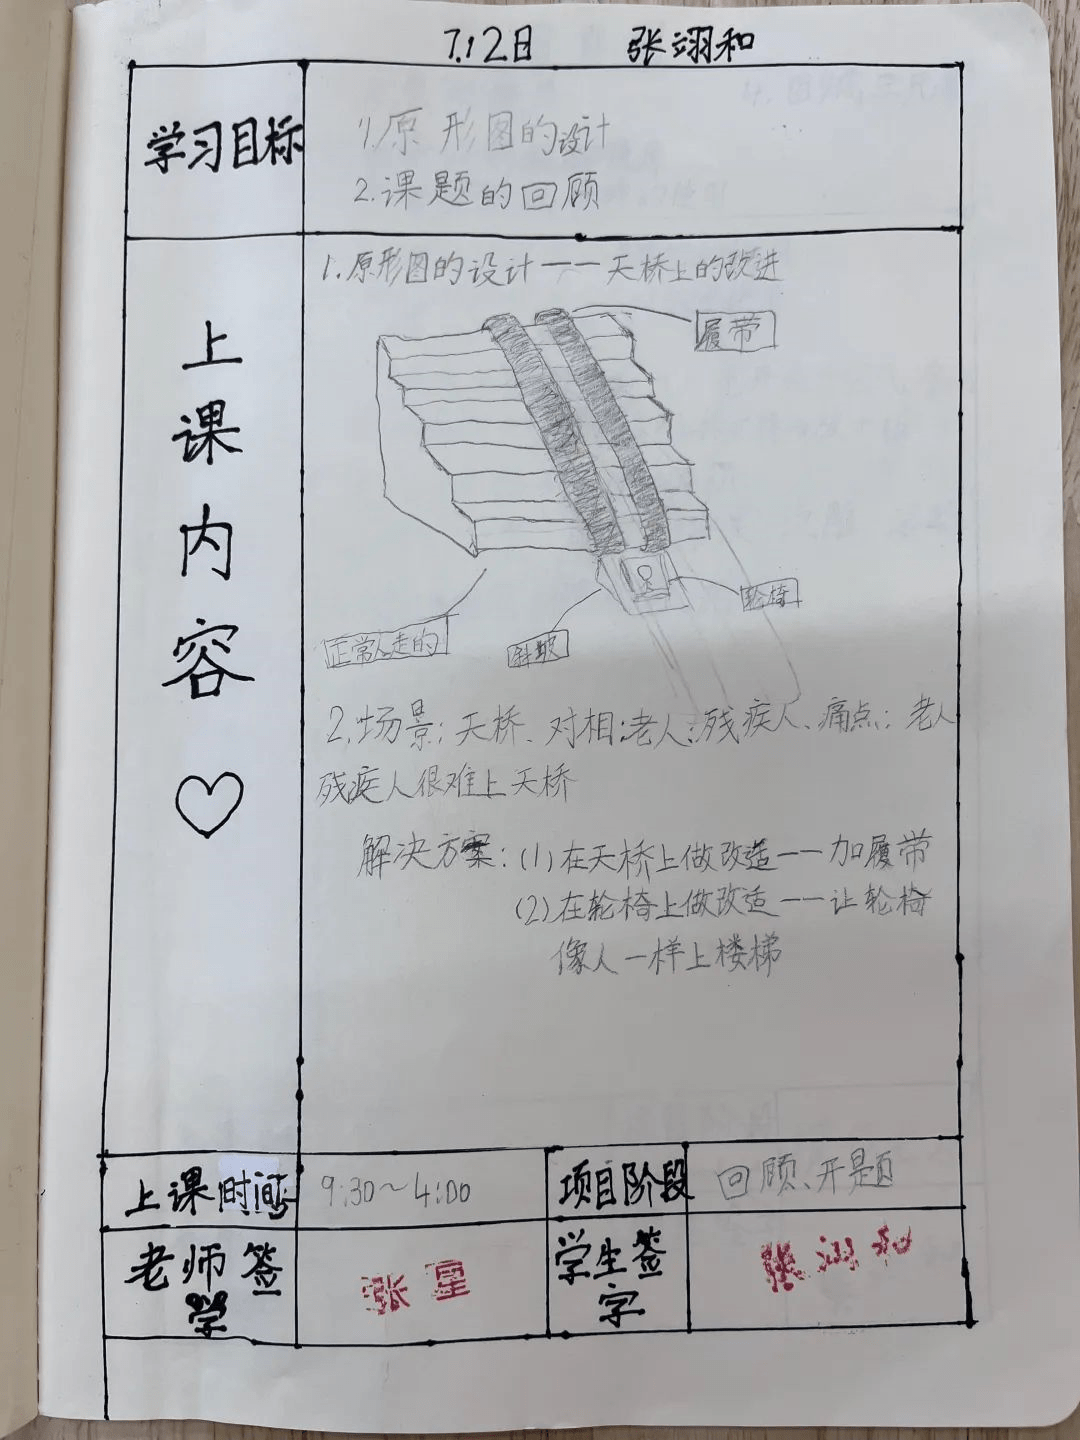 7.12日 张翊和
学习目标
1.原形图的设计
2.课题的回顾
上课内容
1.原形图的设计——天桥上的改进
履带
轮椅
正常人走的
斜坡
2.场景:天桥、对相:老人;残疾人、痛点:老人
残疾人很难上天桥
解决方案:(1)在天桥上做改造——加履带
(2)在轮椅上做改造——让轮椅
像人一样上楼梯
上课时间 9:30~4:00 项目阶段 回顾、开题
老师签字 张星 学生签字 张翊和